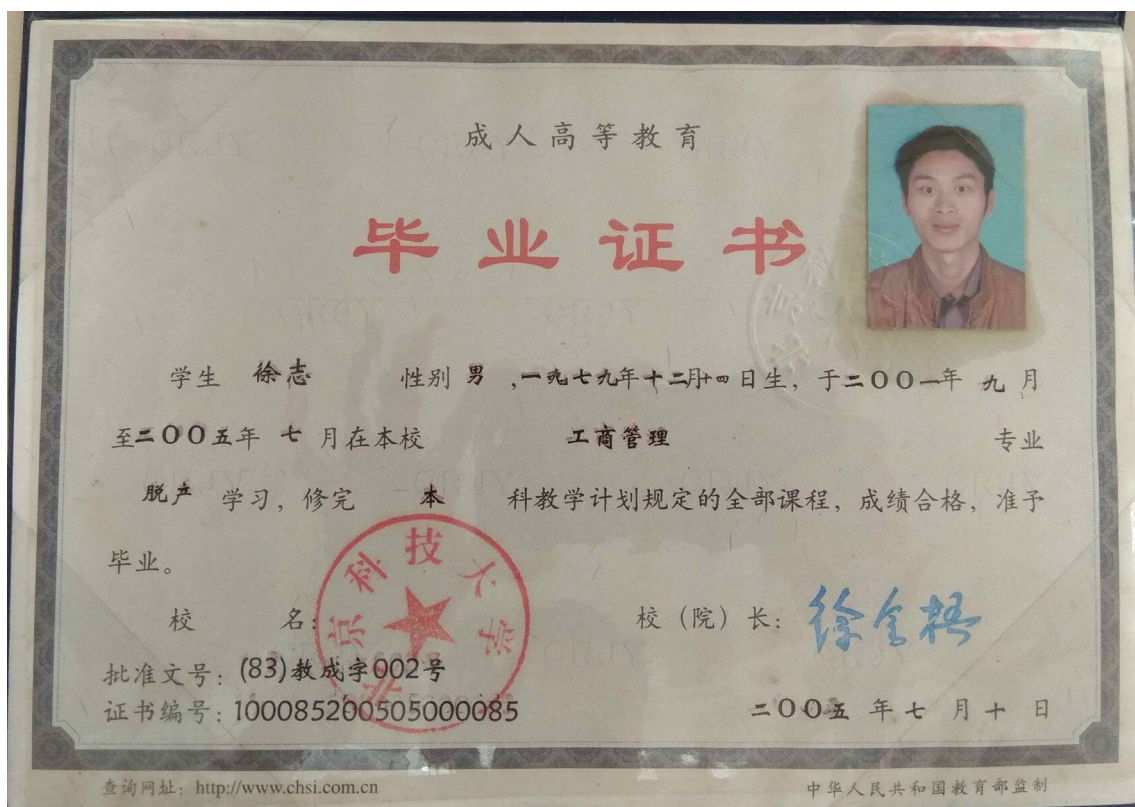 成人高等教育
毕业证书
学生 徐志 性别 男 ,一九七九年十二月十四日生, 于二〇〇一年 九 月
至二〇〇五年 七 月在本校 工商管理 专业
脱产 学习, 修完 本 科教学计划规定的全部课程, 成绩合格, 准予
毕业。
校 名:
北京科技大学
校（院）长: 徐金梧
批准文号: (83)教成字002号
证书编号: 100085200505000085
二〇〇五 年 七 月 十 日
查询网址: http://www.chsi.com.cn
中华人民共和国教育部监制